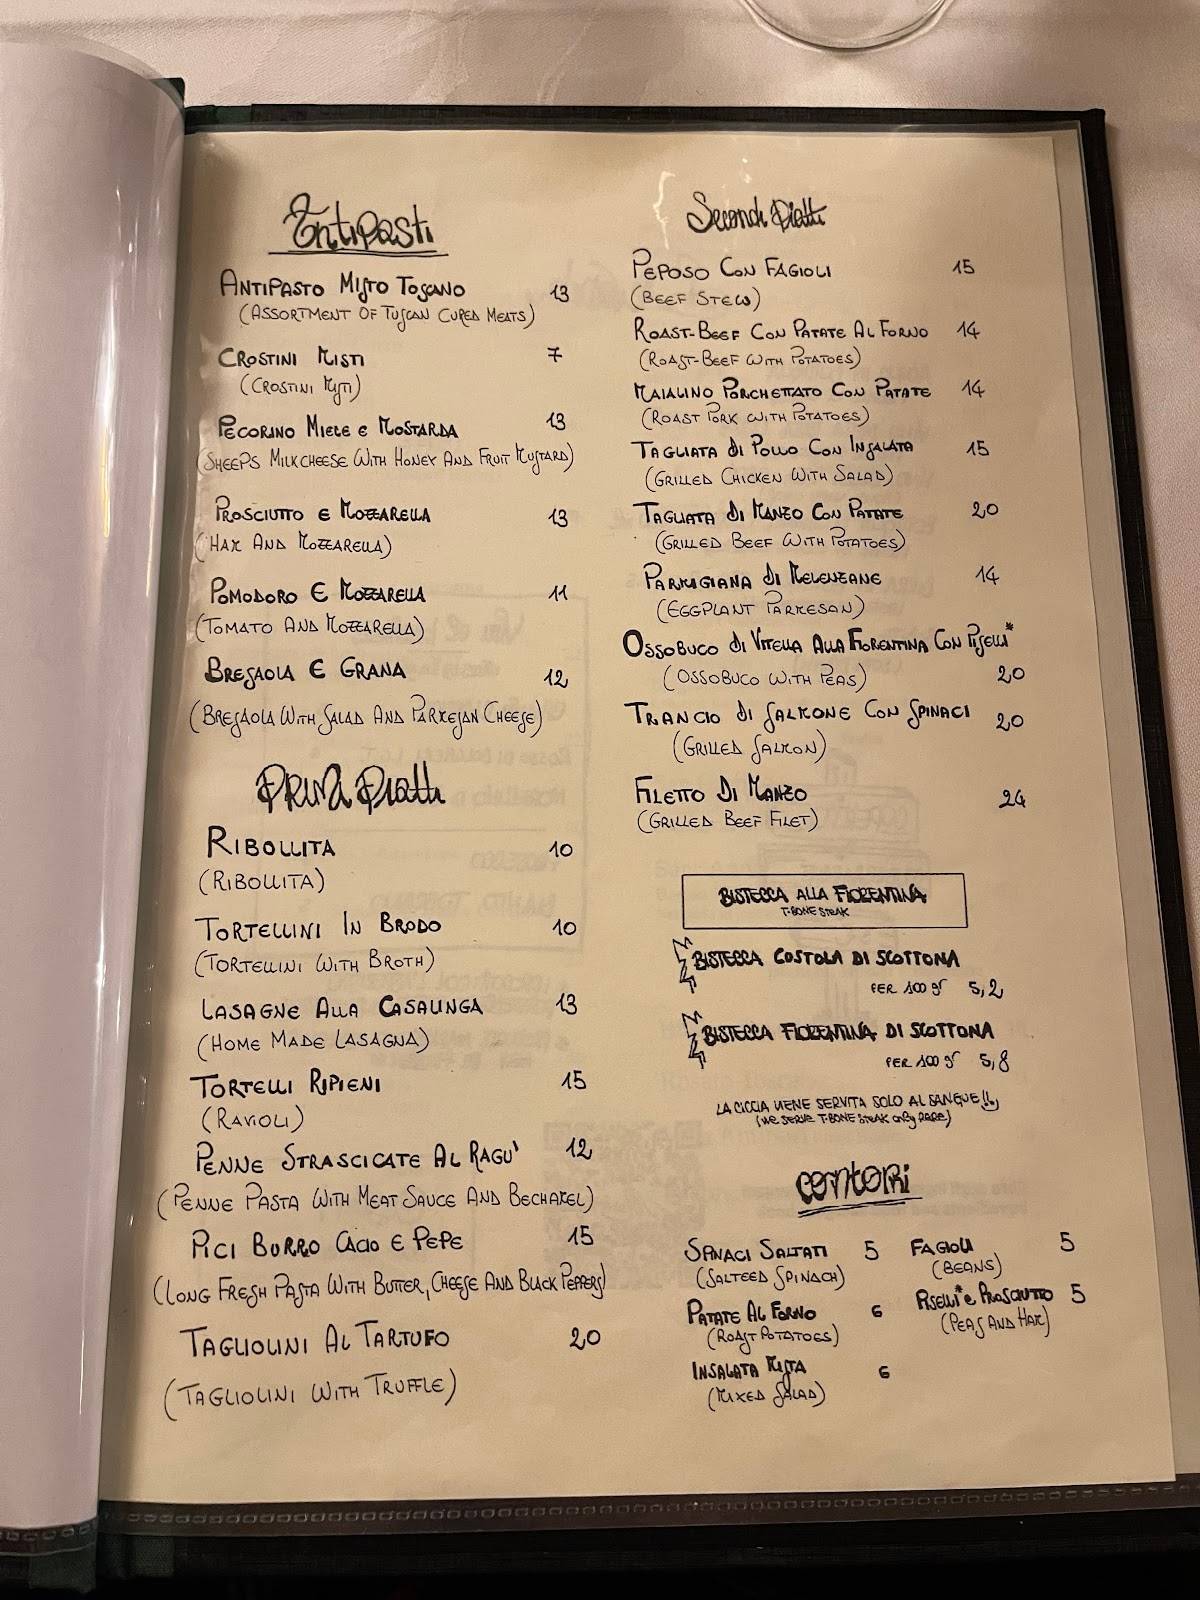 Antipasti
Antipasto Misto Toscano 13
(Assortment of Tuscan Cured Meats)
Crostini Misti 7
(Crostini Misti)
Pecorino Miele e Mostarda 13
(Sheeps Milk cheese With Honey And Fruit Mustard)
Prosciutto e Mozzarella 13
(Ham And Mozzarella)
Pomodoro E Mozzarella 11
(Tomato And Mozzarella)
Bresaola E Grana 12
(Bresaola With Salad And Parmesan Cheese)
Primi Piatti
Ribollita 10
(Ribollita)
Tortellini In Brodo 10
(Tortellini With Broth)
Lasagne Alla Casalinga 13
(Home Made Lasagna)
Tortelli Ripieni 15
(Ravioli)
Penne Strascicate Al Ragu' 12
(Penne Pasta With Meat Sauce And Bechamel)
Pici Burro Cacio e Pepe 15
(Long Fresh Pasta With Butter, Cheese And Black Peppers)
Tagliolini Al Tartufo 20
(Tagliolini With Truffle)
Secondi Piatti
Peposo Con Fagioli 15
(Beef Stew)
Roast-Beef Con Patate Al Forno 14
(Roast-Beef With Potatoes)
Maialino Porchettato Con Patate 14
(Roast Pork With Potatoes)
Tagliata di Pollo Con Insalata 15
(Grilled Chicken With Salad)
Tagliata Di Manzo Con Patate 20
(Grilled Beef With Potatoes)
Parmigiana di Melenzane 14
(Eggplant Parmesan)
Ossobuco di Vitella Alla Fiorentina Con Piselli*
(Ossobuco With Peas) 20
Trancio di Salmone Con Spinaci 20
(Grilled Salmon)
Filetto Di Manzo 24
(Grilled Beef Filet)
Bistecca alla Fiorentina
T-Bone Steak
Bistecca Costola di Scottona
per 100 gr 5,2
Bistecca Fiorentina di Scottona
per 100 gr 5,8
La ciccia viene servita solo al sangue!!
(We serve T-Bone steak only rare)
Contorni
Spinaci Saltati 5
(Salteed Spinach)
Patate Al Forno 6
(Roast Potatoes)
Insalata Mista 6
(Mixed Salad)
Fagioli 5
(Beans)
Piselli* e Prosciutto 5
(Peas And Ham)